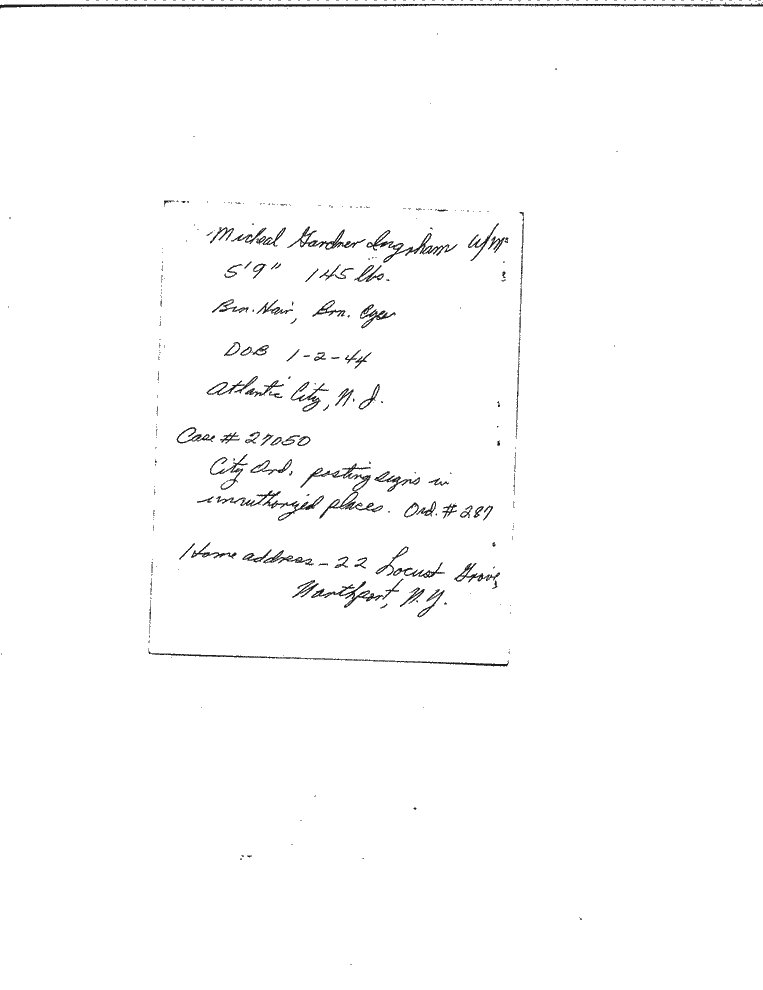 Micheal Gardner Ingraham W/M
5'9" 145 lbs.
Brn. Hair, Brn. Eyes
DOB 1-2-44
Atlantic City, N.J.
Case # 27050
City Ord. posting signs in
unauthorized places. Ord. # 287
Home address - 22 Locust Grove,
Northport, N.Y.